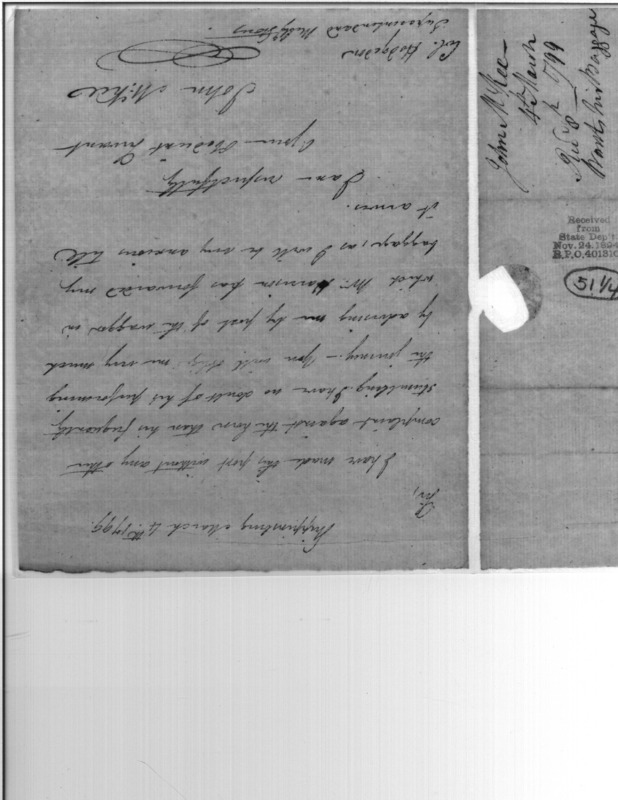 Shippinsburg March 4th 1799
Sir,
I have made this post without any other
complaint against the horse than his frequently
stumbling. I have no doubt of his performing
the journey. — You will oblige me very much
by advising me by post of the waggon in
which Mr. Harrison has forwarded my
baggage, as I will be very anxious till
it arrives.
I am respectfully
Your Obedient Servant
John McKee
Col. Hodgsdon
Superintendant Military Stores
John McKee —
4th March
1799
Wants his Baggage
Received
from
State Dep't
Nov. 24, 1894
R.P.O. 401310
51 1/4